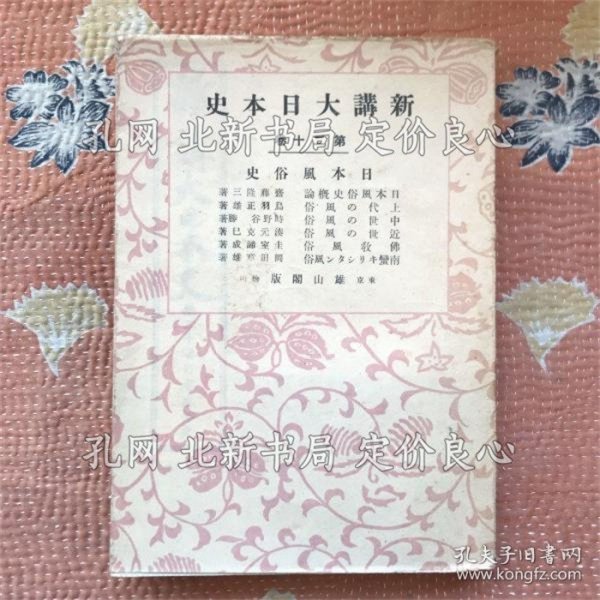 新講大日本史
第十
孔网 北新书局 定价良心
日本風俗史
日本風俗史概論 齋藤隆三著
上代の風俗 鳥羽正雄著
中世の風俗 時野谷勝著
近世の風俗 湊元克巳著
佛教風俗 圭室諦成著
南蠻キリシタン風俗 岡田章雄著
東京 雄山閣版
孔网 北新书局 定价良心
孔夫子旧书网
www.kongfz.com